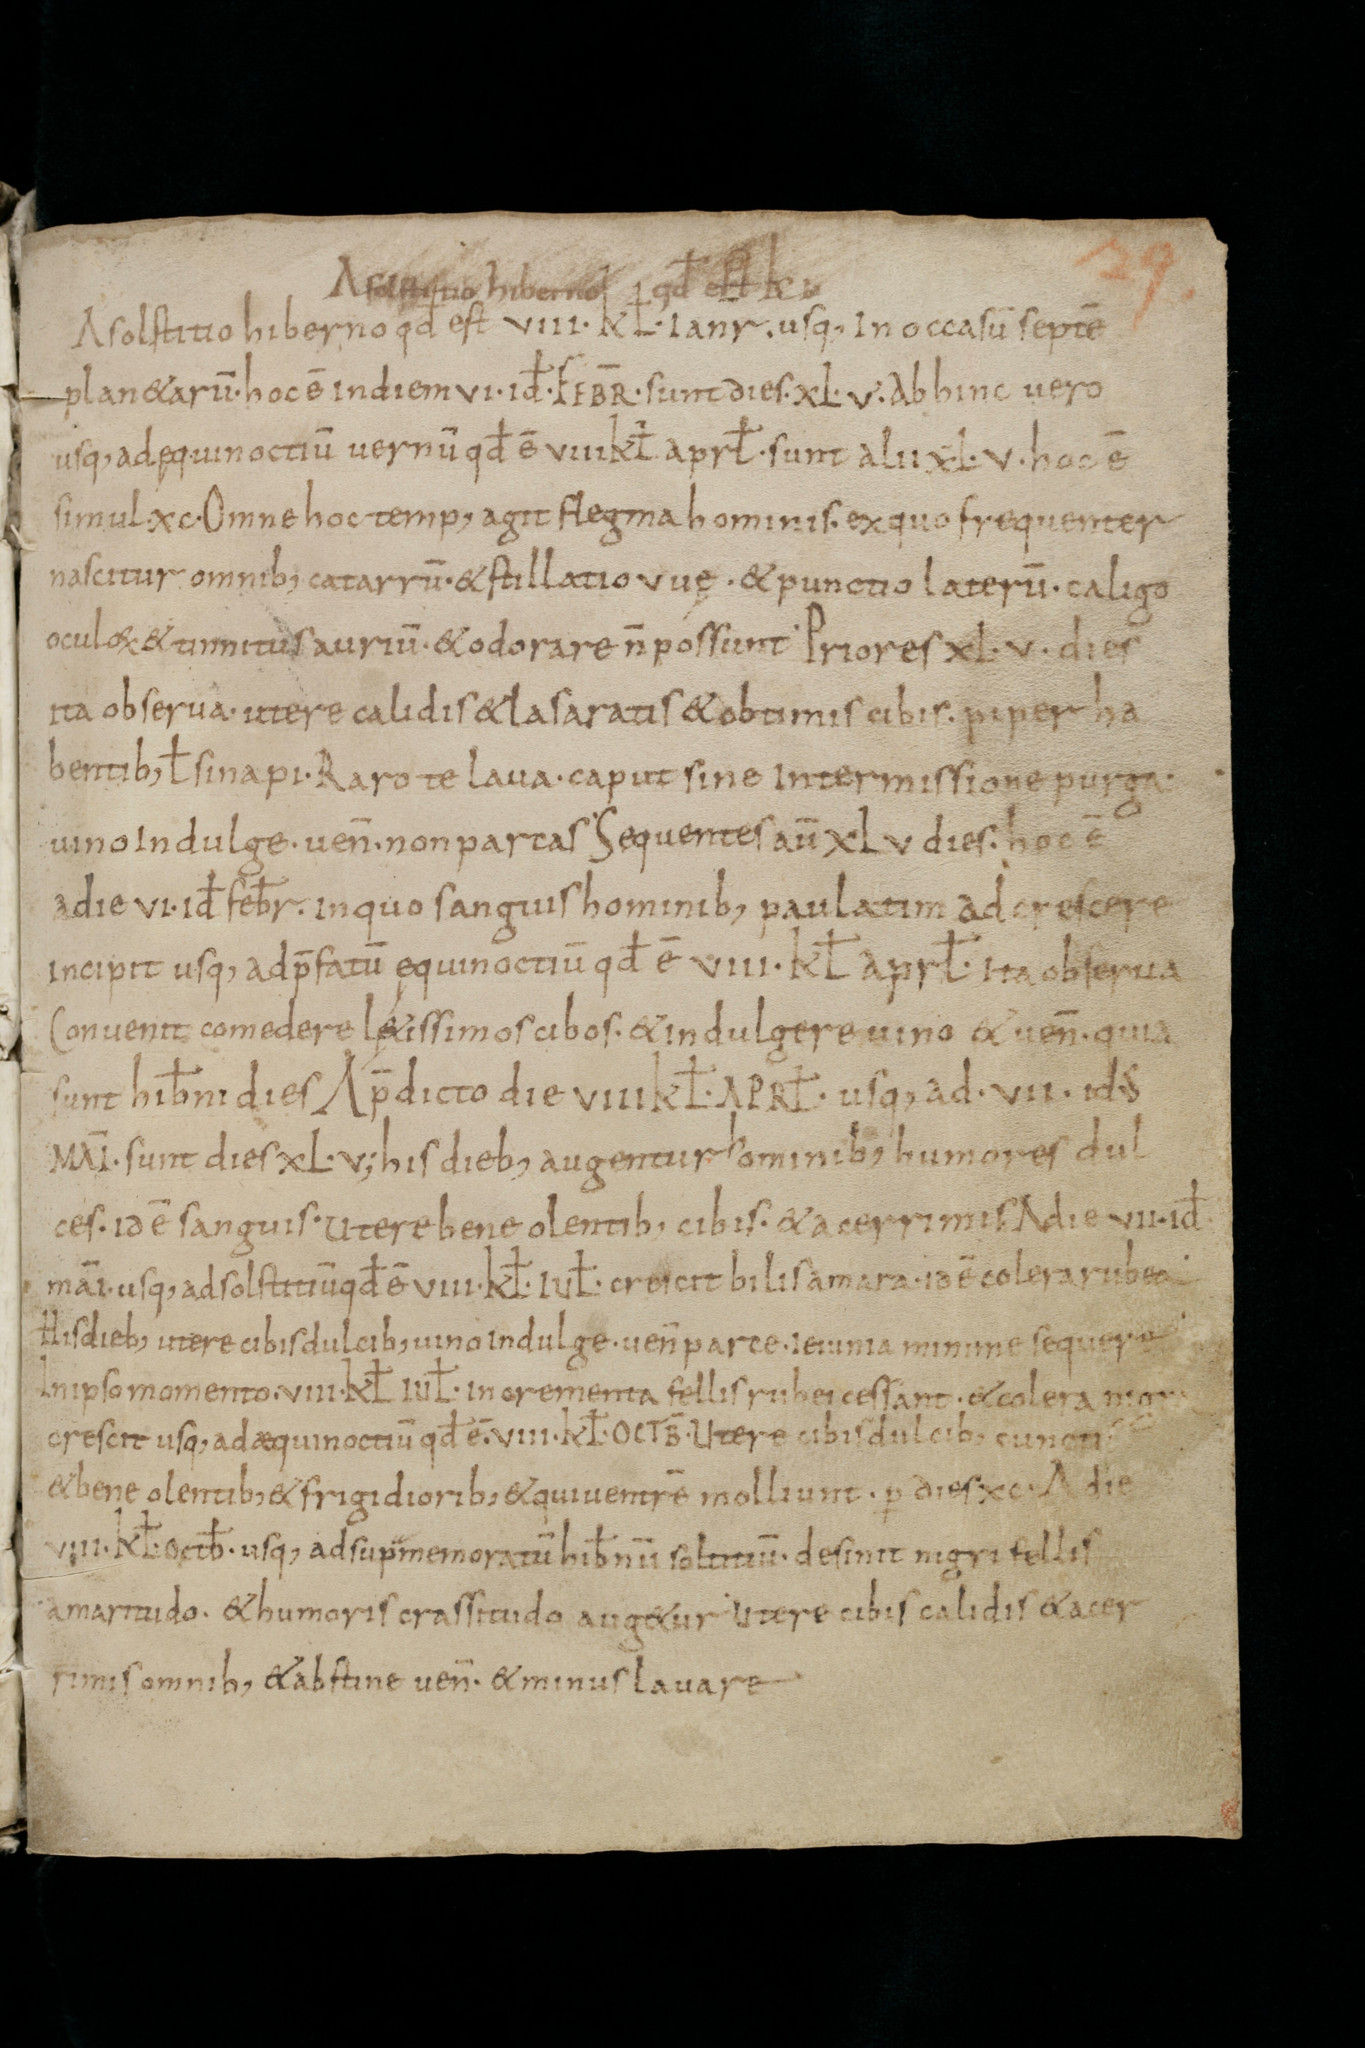 29.
A solstitio hiberno qđ est k
A solstitio hiberno qđ est VIII · KL̄ · Ianr̄ · usq; in occasū septē
plan&arū · hoc ē in diem VI · iđ · FEBR̄ · sunt dies · XL · V · Ab hinc uero
usq; ad ęquinoctiū uernū qđ ē VIII KL̄ aprł · sunt alii XL · V · hoc ē
simul · XC · Omne hoc temp; agit flegma hominis · ex quo frequenter
nascitur omnib; catarrū · & stillatio vuę · & punctio laterū · caligo
oculoꝝ & tinnitus auriū · & odorare n̄ possunt · Priores XL · V · dies
ita obserua · utere calidis & lasaratis & obtimis cibis · piper ha
bentib; ł sinapi · Raro te laua · caput sine intermissione purga ·
uino indulge · uen̄ · non parcas · Sequentes aū XL V dies · hoc ē
a die VI · iđ feb̄r · in quo sanguis hominib; paulatim adcrescere
incipit usq; ad p̄fatū ęquinoctiū qđ ē VIII · KL̄ aprł · ita obserua
Conuenit comedere l&issimos cibos · & indulgere uino & uen̄ · quia
sunt hib̄ni dies A p̄dicto die VIII KL̄ · APRŁ · usq; ad · VII · idS
MAĪ · sunt dies XL · V; his dieb; augentur hominib; humores dul
ces · id ē sanguis · Utere bene olentib; cibis · & acerrimis A die VII · iđ
māi · usq; ad solstitiū qđ ē VIII · KL̄ · IUŁ · crescit bilis amara · id ē colera rubea
His dieb; utere cibis dulcib; uino indulge · uen̄ parce · ieiunia minime sequere
In ipso momento · VIII · KL̄ IUŁ · incrementa fellis rubei cessant · & colera nigra
crescit usq; ad æquinoctiū qđ ē · VIII · KL̄ · OCTB̄ · Utere cibis dulcib; cunctis
& bene olentib; & frigidiorib; & qui uentrē molliunt · ꝑ dies XC · A die
VIII · KL̄ · Octb̄ · usq; ad sup̄memoratū hib̄nū soltitiū · desinit nigri fellis
amaritudo · & humoris crassitudo aug&ur · Utere cibis calidis & acer
rimis omnib; & abstine uen̄ · & minus lauare